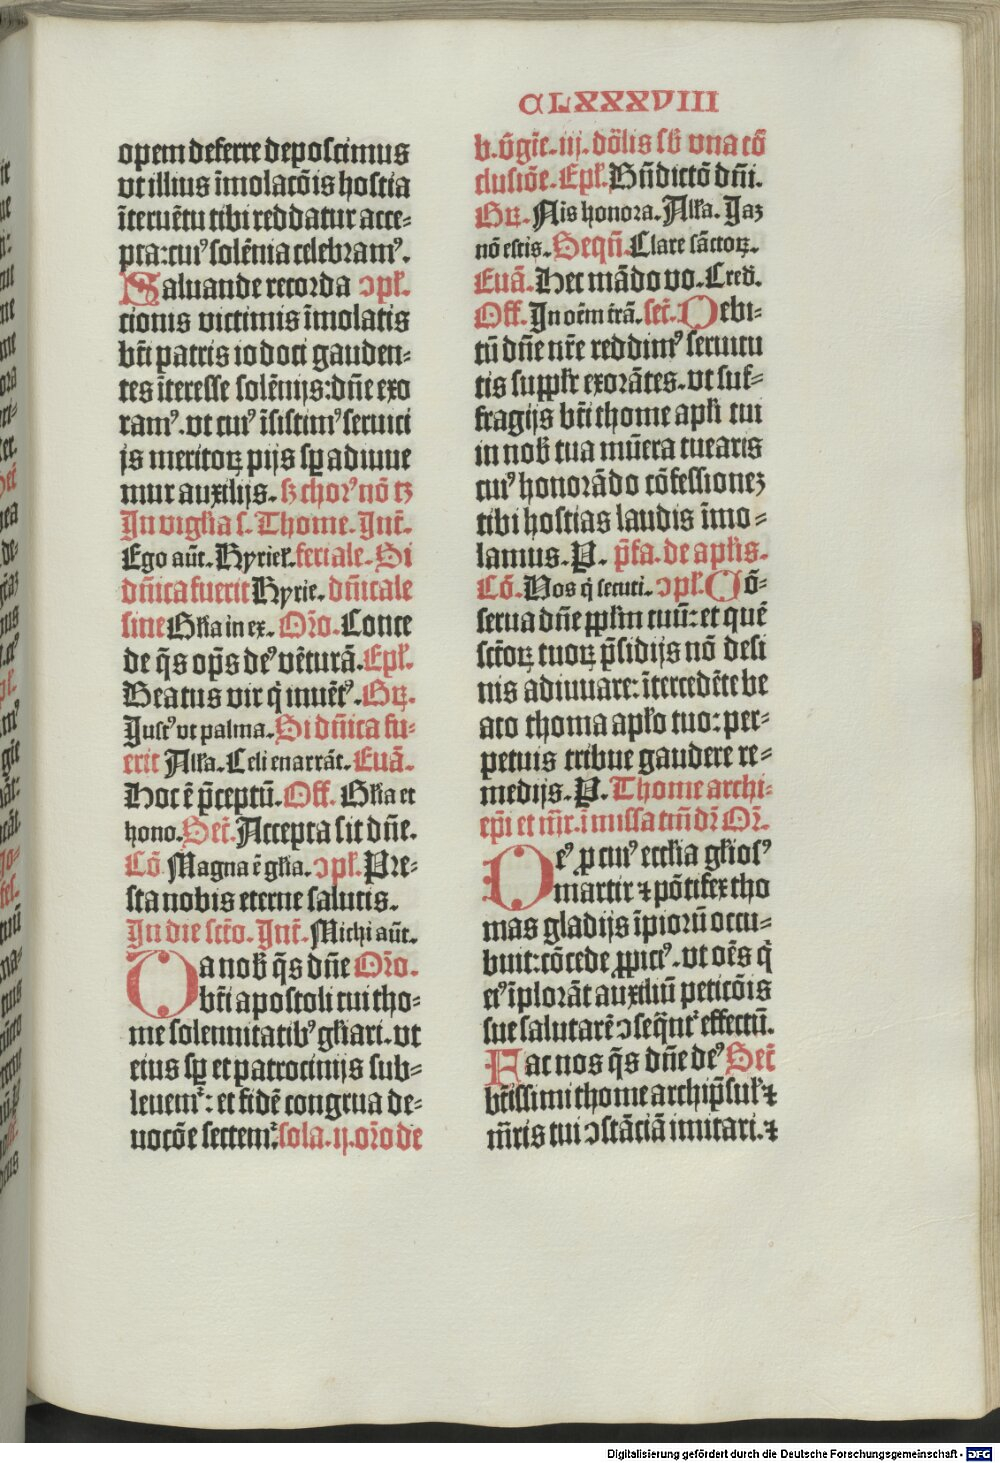 CLXXXVIII
opem deferre deposcimus
vt illius īmolacōis hostia
īteruētu tibi reddatur acce-
pta: cuiꝰ solēnia celebramꝰ.
Saluande recorda ↄpł.
cionis victimis īmolatis
btī patris iodoci gauden-
tes īteresse solēnijs: dn̄e exo
ramꝰ. vt cuiꝰ īsistimꝰ seruici
js meritoꝝ pijs sꝑ adiuue
mur auxilijs. ß choꝛꝰ nō tꝫ
In vigłia s. Thome. Int̄.
Ego aūt. Kyrieł. feriale. Si
dn̄ica fuerit Kyrie. dn̄icale
sine Głia in ex. Oꝛō. Conce
de q̄s op̄s deꝰ vēturā. Epł.
Beatus vir q̇ inuētꝰ. Gꝝ.
Justꝰ vt palma. Si dn̄ica fu-
erit Ałła. Celi enarrāt. Euā.
Hoc ē p̄ceptū. Off. Głia et
hono. Secr̄. Accepta sit dn̄e.
Cō. Magna ē głia. ↄpł. Pre-
sta nobis eterne salutis.
In die sctō. Int̄. Michi aūt.
Da noƀ q̄s dn̄e Oꝛō.
btī apostoli tui tho-
me solennitatibꝰ głiari. vt
eius sꝑ et patrocinijs sub-
leuemꝛ̄: et fidē congrua de-
uocōe sectemꝛ̄. sola. ij. oꝛō de
b. v̄gīe. iij. dōlis sƀ vna cō
clusiōe. Epł. Bn̄dictō dn̄i.
Gꝝ. Nis honora. Ałła. Jaꝫ
nō estis. Seqū. Clare sāctoꝝ.
Euā. Hec mādo vo. Cred̄.
Off. In oēm trā. secr̄. Debi-
tū dn̄e nr̄e reddimꝰ seruitu
tis suppłr exorātes. vt suf-
fragijs btī thome apłi tui
in noƀ tua mūera tuearis
cuiꝰ honorādo cōfessioneꝫ
tibi hostias laudis īmo-
lamus. P. p̄fa. de apłis.
Cō. Vos q̇ secuti. ↄpł. Cō-
serua dn̄e ppłm tuū: et quē
sctōꝝ tuoꝝ p̄sidijs nō desi
nis adiuuare: ītercedēte be
ato thoma apło tuo: per-
petuis tribue gaudere re-
medijs. P. Thome archi-
ep̄i et mr̄. ī missa tm̄ dꝛ̄ Oꝛ̄.
Deꝰ ꝓ cuiꝰ eccłia głiosꝰ
martir ⁊ pōtifex tho
mas gladijs īpiorū occu-
buit: cōcede ꝓpiciꝰ. vt oēs q̇
eiꝰ īplorāt auxiliū peticōis
sue salutarē ↄseq̄nt̄ effectū.
Fac nos q̄s dn̄e deꝰ Secr̄
btīssimi thome archip̄suł ⁊
mr̄ris tui ↄstāciā imitari. ⁊
Digitalisierung gefördert durch die Deutsche Forschungsgemeinschaft - DFG